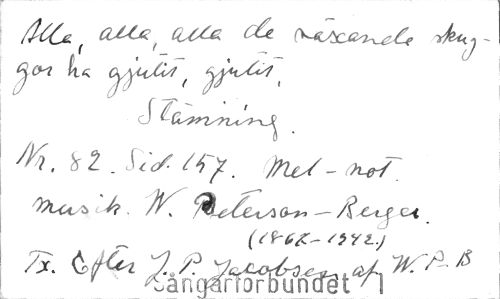 Alla, alla, alla de växande skug-
gor ha gjutit, gjutit,
Stämning.
Nr. 82. Sid. 157. Mel-not.
musik. W. Peterson-Berger.
(1867-1942.)
Tx. Efter J. P. Jacobsen af W. P-B
Sångarförbundet 1